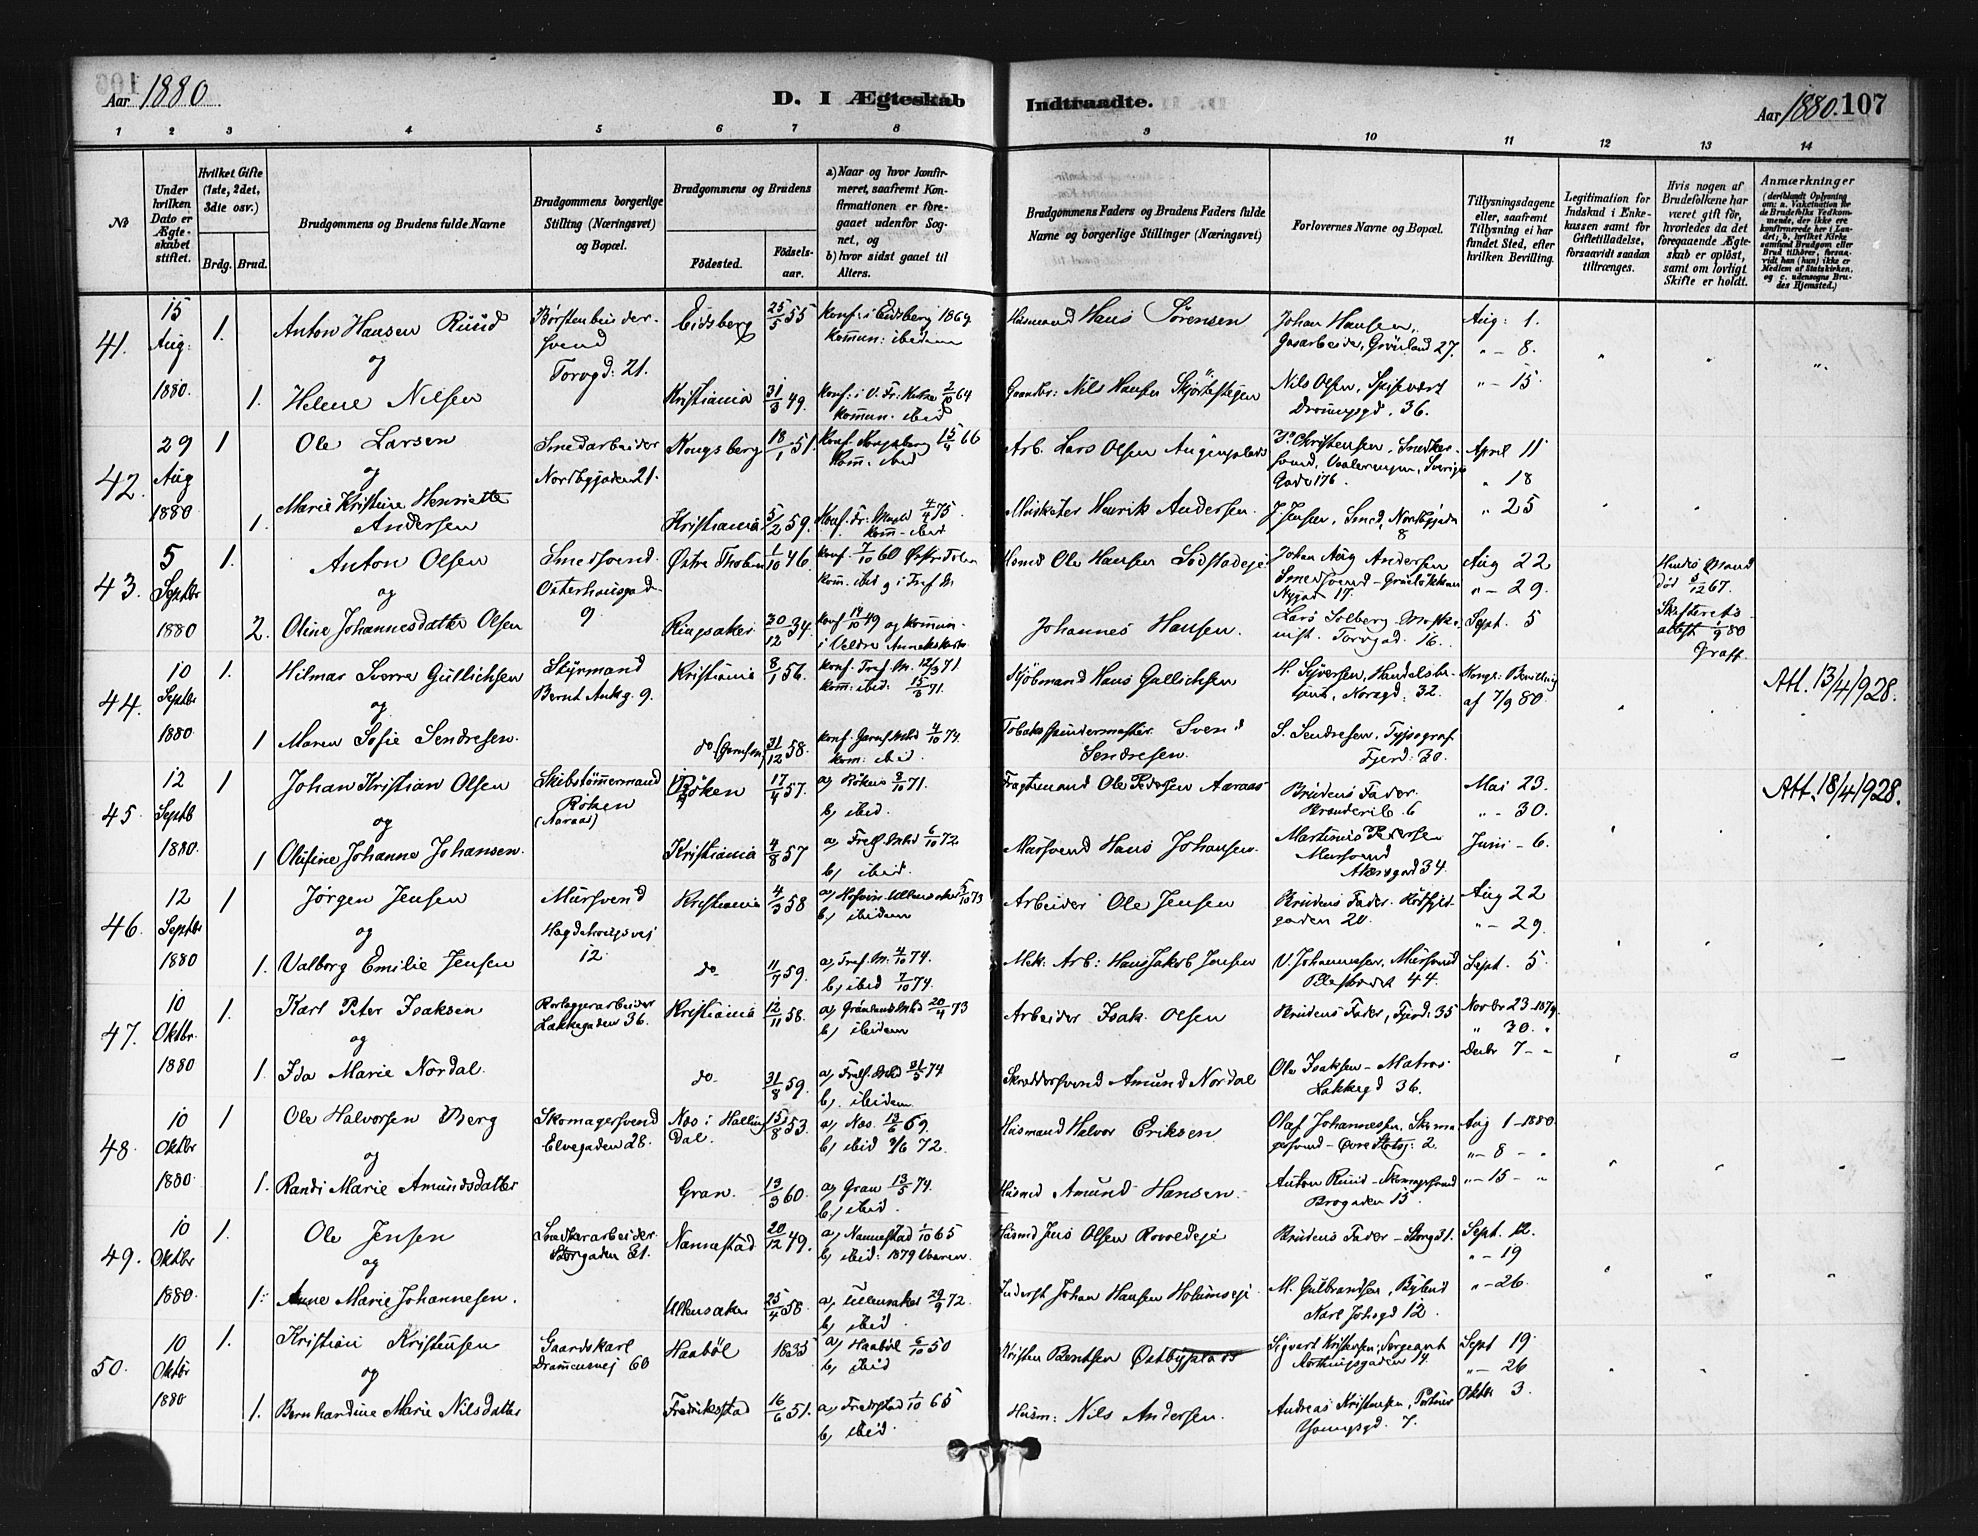 Aar 1880
D. I Ægteskab Indtraadte.
Aar 1880. 107
1 2 3 4 5 6 7 8 9 10 11 12 13 14
№
Under hvilken Dato er Ægteskabet stiftet.
Hvilket Gifte (1ste, 2det, 3die osv.)
Brdg. Brud.
Brudgommens og Brudens fulde Navne
Brudgommens borgerlige Stilling (Næringsvei) og Bopæl.
Brudgommens og Brudens
Fødested. Fødselsaar.
a) Naar og hvor konfirmeret, saafremt Konfirmationen er foregaaet udenfor Sognet, og
b) hvor sidst gaaet til Alters.
Brudgommens Faders og Brudens Faders fulde Navne og borgerlige Stillinger (Næringsvei)
Forlovernes Navne og Bopæl.
Tillysningsdagene eller, saafremt Tillysning ei har fundet Sted, efter hvilken Bevilling.
Legitimation for Indskud i Enkekassen samt for Giftetilladelse, forsaavidt saadan tiltrænges.
Hvis nogen af Brudefolkene har været gift før, hvorledes da det foregaaende Ægteskab er opløst, samt om lovligt Skifte er holdt.
Anmærkninger
41. 15 Aug: 1880. 1. Anton Hansen Ruud
Børstenbindersvend Torvgd: 21.
Eidsberg 25/5 55 Konf: i Eidsberg 1869 Kommun: ibidem
Husmand Hans Sørensen
Johan Hansen, Gasarbeider, Grønland 27.
Aug: 1. " - 8. " - 15.
og
1. Helene Nilsen
Kristiania 31/3 49. Konf: i V. Fr: Kirke 2/10 64 Kommun. ibid
Nils Hansen Skjortestegen
Nils Olsen, Spisevært Drammsgd. 36.
42. 29 Aug 1880 1 Ole Larsen
Smedarbeider Nordbygaden 21.
Kongsberg 18/1 51. Konf. Kongsberg 15/4 66 Kom: ibid
Arb. Lars Olsen
Christensen, Vaalerengen, Sverigs Gade 176.
April 11 " 18 " 25
og
1. Marie Kristine Henriette Andersen
Kristiania 5/2 59. Konf. Fr. Meld 4/4 75 kom - ibid
Musketer Henrik Andersen.
J. Jensen, Smed, Nordbygaden 8
43. 5 Septbr 1880 1. Anton Olsen
Smedsvend. Osterhausgad 9.
Østre Thoten 1/10 46. Konf. 7/10 60 Østre Toten Kom. ibid
Husmd Ole Hansen
Johan Aug Andersen Smedsvend - Grünløkken Nygad 17.
Aug 22 " - 29. Sept. 5
og
2. Oline Johannesdatter Olsen
Ringsaker 30/12 34. Konf 14/10 49 og kommun - i Veldre
Johannes Hansen.
Lars Solberg - Torvgad. 16.
Hendes Mand død 8/12 67. Skifterets attest 1/9 80 Graff.
44. 10 Septbr 1880 1. Hilmar Sverre Gullichsen
Styrmand Bernt Ankg. 9.
Kristiania 8/1 56. Konf. Tref. M. 12/3 71 Kom: ibid: 15/3 71.
Skibmand Hans Gullichsen
H. Syversen, Norsgd. 32.
Kongl: Bevilling af 7/9 80
Att. 13/4 1928.
og
1 Maren Sofie Sendresen.
do (Garnison) 31/12 58. Konf. Garns. Mhd 4/10 74. kom: ibid
Tobakspindermester Svend Sendresen.
S. Sendresen, Typograf Fjerd: 30.
45. 12 Septb 1880. 1 Johan Kristian Olsen
Skibstømmermand Røken (Aaraas)
Røken 17/4 57. a) Røken 8/10 71. b) ibid.
Fragtemand Ole Pedersen Aaraas
Brudens Fader.
Mai 23. " - 30. Juni - 6.
Att. 18/4 1928.
og
1 Olufine Johanne Johansen.
Kristiania 4/8 57 a) Frels. Mhd 6/10 72 b) ibid.
Mursvend Hans Johansen.
Martinus Pedersen Mursvend Akersgad 34.
46. 12 Septbr 1880 1 Jørgen Jensen
Mursvend Hegdehougsvej 12.
Kristiania 4/3 58 5/10 73 b) ibidem
Arbeider Ole Jensen
Brudens Fader. 20.
Aug 22 " - 29. Sept. 5.
og
1. Valborg Emilie Jensen
do 11/7 59. a) Tref. M. 4/10 74. b) ibid 7/10 74.
Mek. Arb: Hans Jakob Jensen
V. Johannesen, Mursvend Pilestrædet 44.
47. 10 Oktbr. 1880 1. Karl Peter Isaksen
Rørlæggerarbeider Lakkegaden 36.
Kristiania 12/11 58. a) Grønlands Mhd 20/4 73 b) ibidem
Arbeider Isak Olsen
Brudens Fader, Fjerd. 35
Novbr 23 - 1879. " 30. " Decbr 7 - "
og
1. Ida Marie Nordal.
do 31/8 59. a) Frels. Mhd 31/5 74 b) ibidem
Skræddersvend Amund Nordal
Ole Isaksen - Matros - Lakkegd 36.
48. 10 Oktbr 1880 1 Ole Halvorsen Berg
Skomagersvend Elvegaden 28.
Næs i Hallingdal. 15/8 53. a) Næs. 13/6 69. b) ibid 2/6 72.
Husmand Halvor Eriksen
Olaf Johannessen, Skomagersvend - Øvre Slotsg: 2.
Aug 1 - 1880. " - 8 - " " - 15 - "
og
1. Randi Marie Amundsdatter
Gran. 13/3 60. a) Gran 13/5 74. b) ibid.
Husmd Amund Hansen.
Anton Ruud - Skomagersvend Brogaden 15.
49. 10 Oktbr 1880 1. Ole Jensen
Snedkerarbeider Storgaden 31.
Nannestad 20/12 49. a) Nannestad 1/10 65 b) ibid: 1879 Vaaren.
Husmd Jens Olsen
Brudens Fader - Storgd 1.
Sept. 12. " - 19 " - 26.
og
1. Anne Marie Johannesen.
Ullensaker 25/4 58. a) Ullensaker 29/9 72. b) ibid
Inderst Johan Hansen
M. Gulbrandsen, Bybud Karl Johsgd 12.
50. 10 Oktbr 1880 1. Kristian Kristensen
Gaardskarl Drammensvej 60
Haabøl 1835 a) Haabøl 6/10 50 b) ibid
Kristen Bentsen Østbyplads
Sigvart Kristensen, Sergeant 14.
Sept 19. " - 26 Oktbr 3.
og
1. Bernhardine Marie Nilsdatter
Fredrikstad 16/6 51. a) Fredrikstad 1/10 65 b) ibid.
Husm: Nils Andersen.
Andreas Kristensen, Portner Youngsgd. 7.